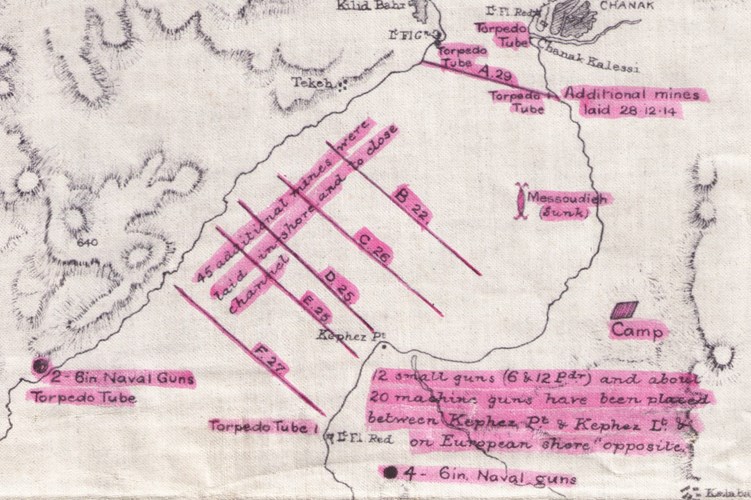 Kilid Bahr
Lt. Fl. Red
CHANAK
Torpedo
Tube
Lt. F.I.G.
Torpedo
Tube
Chanak Kalessi
A.29
Tekeh
Torpedo
Tube
Additional mines
laid 28·12·14
45 additional mines were
laid in shore and to close
channel
B 22
Messoudieh
(Sunk)
C. 26
640
D 25
E 25
Camp
Kephez Pt
F 27
2 - 6in. Naval Guns
Torpedo Tube
12 small guns (6 & 12 Pdr) and about
20 machine guns have been placed
between Kephez Pt & Kephez Lt. &
on European shore "opposite.
Torpedo Tube 1
Lt. Fl. Red
4 - 6in. Naval guns